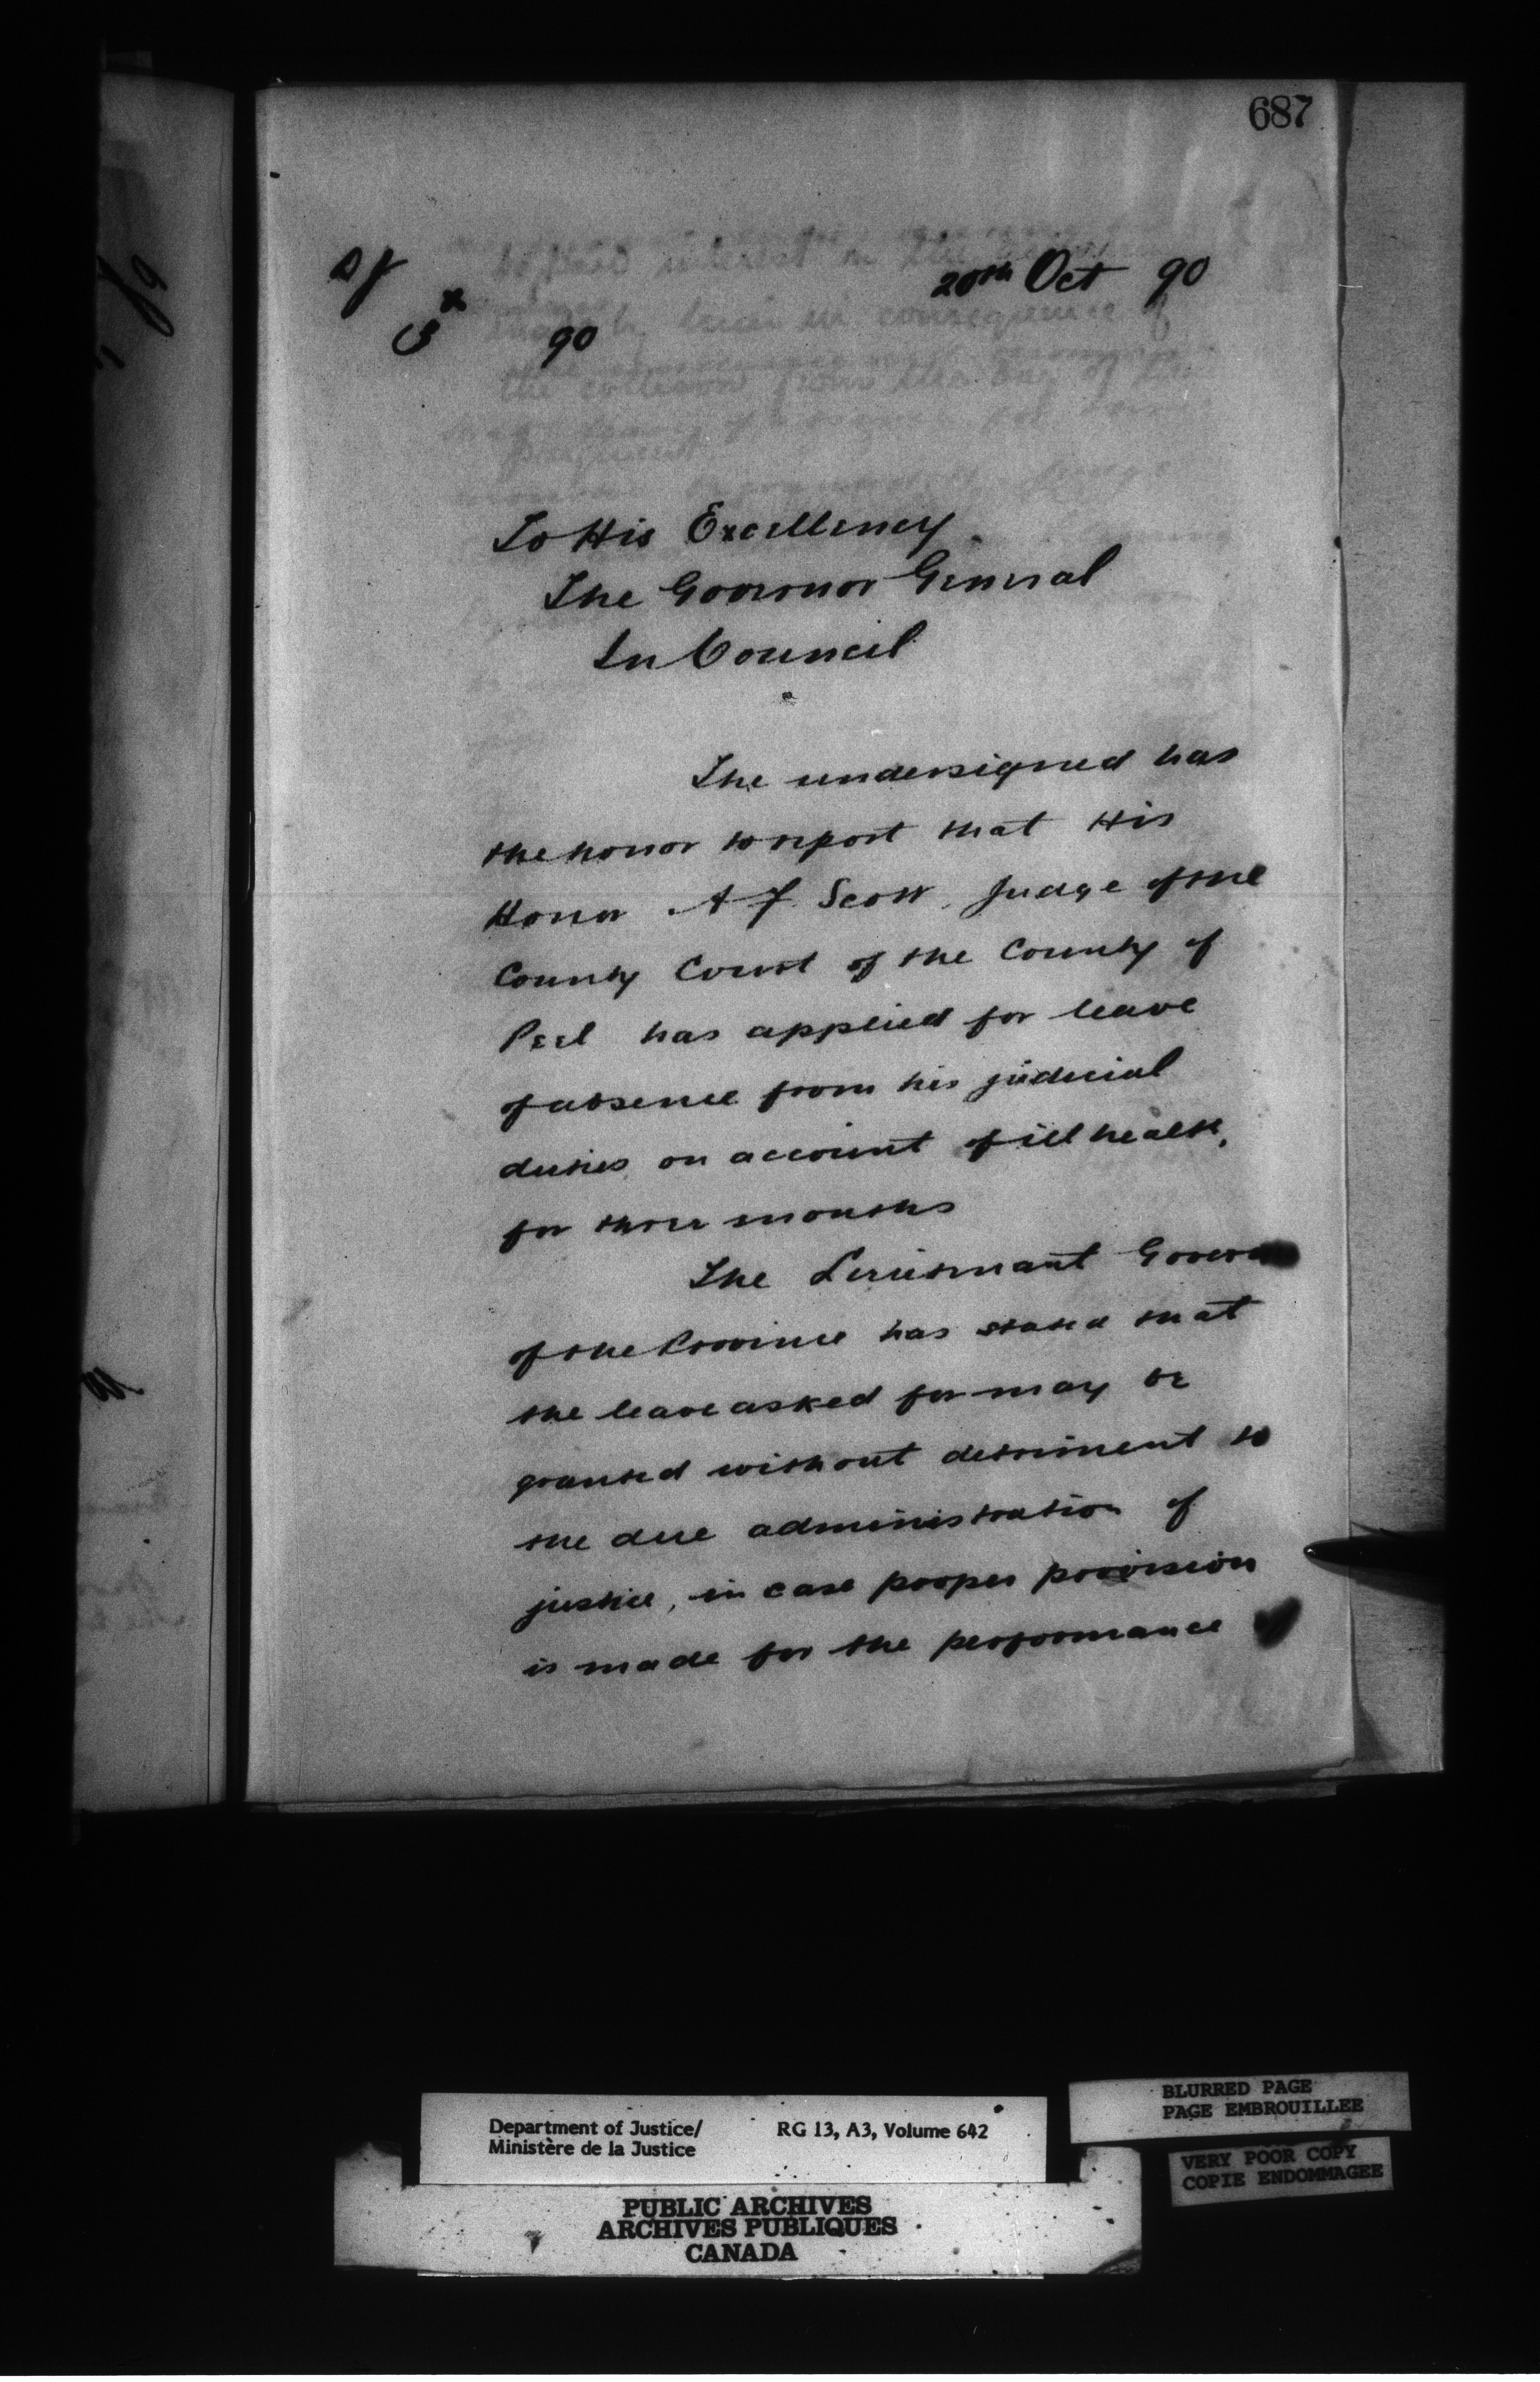 687
20th Oct 90
90
To His Excellency
The Governor General
In Council
The undersigned has
the honor to report that His
Honor A F Scott, Judge of the
County Court of the County of
Peel has applied for leave
of absence from his judicial
duties on account of ill health,
for three months
The Lieutenant Governor
of the Province has stated that
the leave asked for may be
granted without detriment to
the due administration of
justice, in case proper provision
is made for the performance of
Department of Justice/
Ministère de la Justice
RG 13, A3, Volume 642
PUBLIC ARCHIVES
ARCHIVES PUBLIQUES
CANADA
BLURRED PAGE
PAGE EMBROUILLEE
VERY POOR COPY
COPIE ENDOMMAGEE